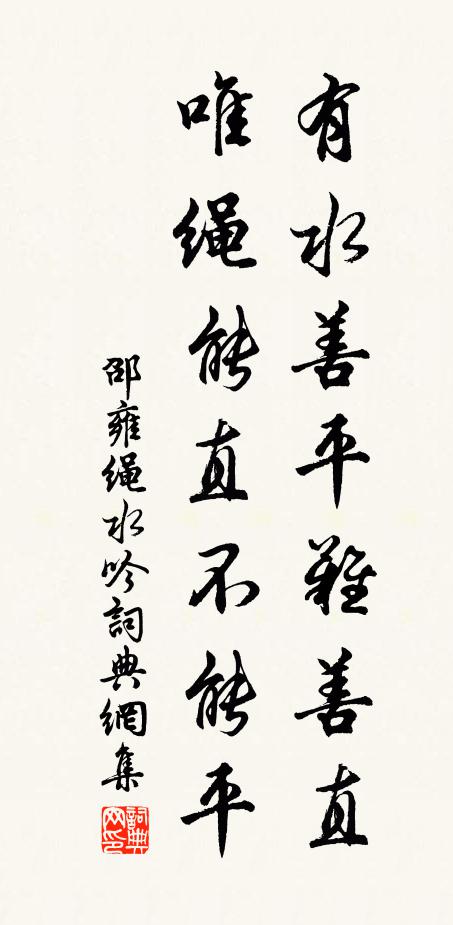 有水善平難善直
唯繩能直不能平
邵雍繩水吟詞典網集
詞典网印